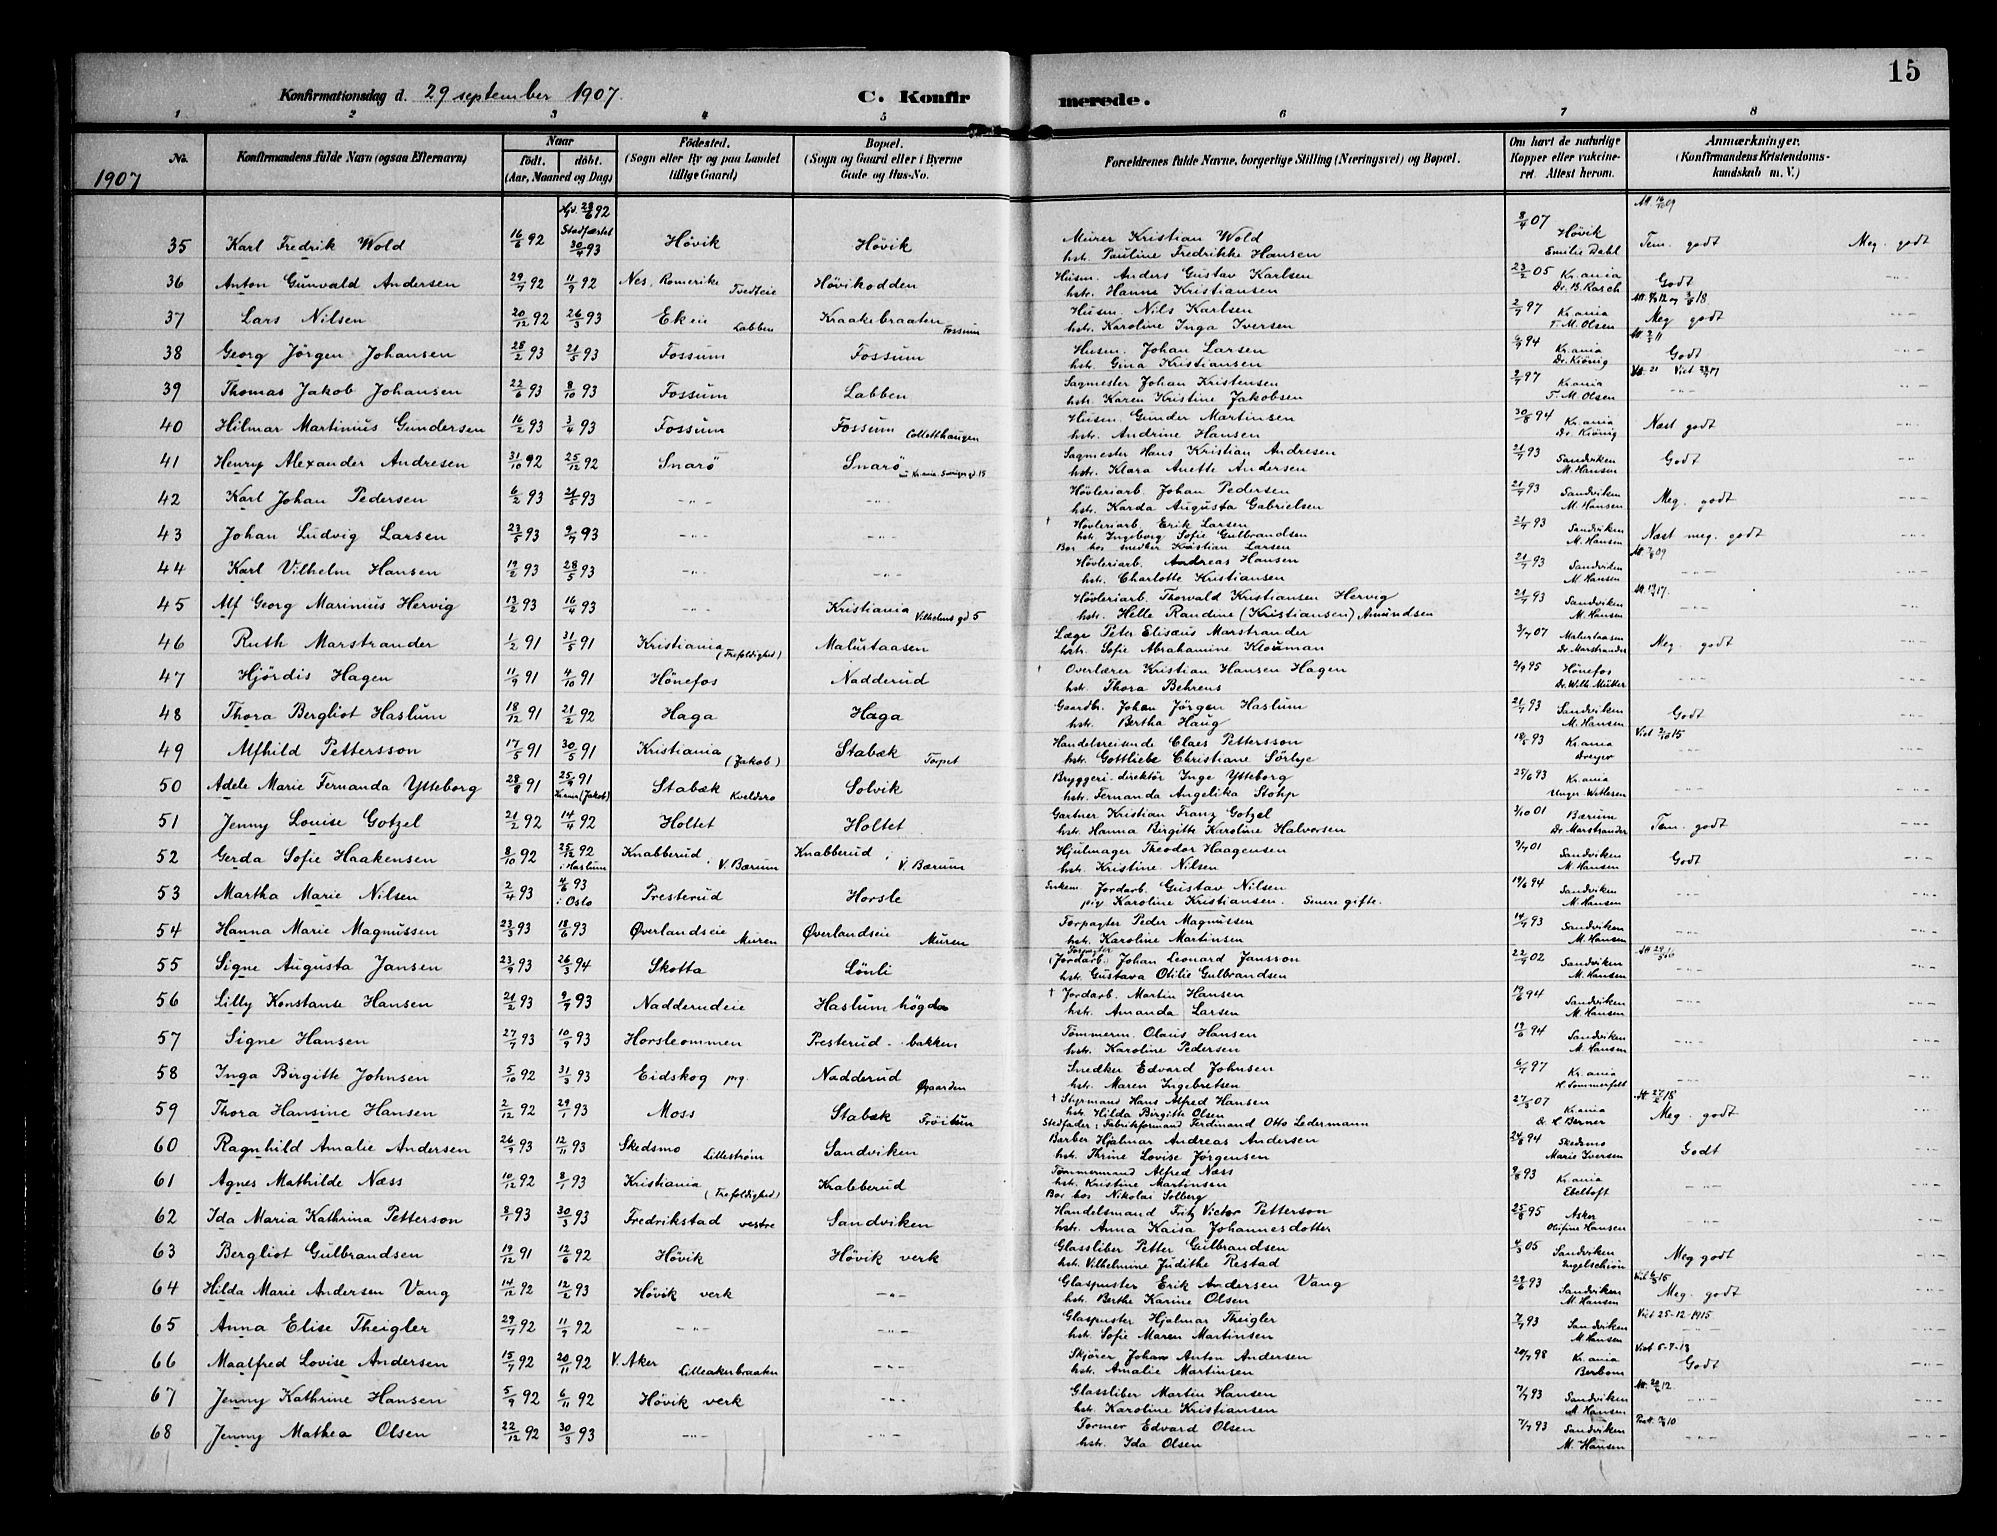 15
Konfirmationsdag d. 29 september 1907. C. Konfirmerede.
1 2 3 4 5 6 7 8
No. Konfirmandens fulde Navn (ogsaa Efternavn) Naar født. døbt. (Aar, Maaned og Dag) Fødested. (Sogn eller By og paa Landet tillige Gaard) Bopæl. (Sogn og Gaard eller i Byerne Gade og Hus-No. Forældrenes fulde Navne, borgerlige Stilling (Næringsvei) og Bopæl. Om havt de naturlige Kopper eller vakcineret. Attest herom. Anmærkninger. (Konfirmandens Kristendomskundskab m. V.)
1907
35 Karl Fredrik Wold 16/6 92 Hj. 28/6 92 Stadfæstet 30/4 93 Hövik Hövik Murer Kristian Wold hstr. Pauline Fredrikke Hansen 8/4 07 Hövik Emilie Dahl Tem. godt Meg. godt
36 Anton Gunvald Andersen 29/7 92 11/9 92 Nes, Romerike Tvedteie Hövikodden Husm. Anders Gustav Karlsen hstr. Hanna Kristiansen 23/2 05 Kr.ania Dr. B. Rasch Godt -"-
37 Lars Nilsen 20/12 92 26/3 93 Ekeie Labben Kraakebraaten Fossum Husm. Nils Karlsen hstr. Karoline Inga Iversen 2/7 97 Kr.ania T. M. Olsen Meg godt
38 Georg Jörgen Johansen 28/2 93 21/5 93 Fossum Fossum Husm. Johan Larsen hstr. Gina Kristiansen 6/9 94 Kr.ania Dr. Krönig Godt -"-
39 Thomas Jakob Johansen 22/6 93 8/10 93 Fossum Labben Sagmester Johan Kristensen hstr. Karen Kristine Jakobsen 2/7 97 Kr.ania T. M. Olsen -"- -"-
40 Hilmar Martinius Gundersen 16/2 93 3/4 93 Fossum Fossum Colletthaugen Husm. Gunder Martinsen hstr. Andrine Hansen 30/8 94 Kr.ania Dr. Krönig Næst godt -"-
41 Henry Alexander Andresen 31/10 92 25/12 92 Snarö Snarö Sagmester Hans Kristian Andresen hstr. Klara Anette Andersen 21/7 93 Sandviken M. Hansen Godt -"-
42 Karl Johan Pedersen 6/2 93 21/5 93 -"- -"- Hövleriarb. Johan Pedersen hstr. Karda Augusta Gabrielsen 21/7 93 Sandviken M. Hansen Meg. godt -"-
43 Johan Ludvig Larsen 23/5 93 9/7 93 -"- -"- † Hövleriarb. Erik Larsen hstr. Ingeborg Sofie Gulbrandsen Bor hos snedker Kristian Larsen 21/7 93 Sandviken M. Hansen Næst meg. godt -"-
44 Karl Vilhelm Hansen 19/2 93 28/5 93 -"- -"- Hövleriarb. Andreas Hansen hstr. Charlotte Kristiansen 21/7 93 Sandviken M. Hansen -"- -"-
45 Alf Georg Marinius Hervig 13/2 93 16/4 93 -"- Kristiania Vilhelms gd 5 Hövleriarb. Thorvald Kristiansen Hervig hstr. Helle Randine (Kristiansen) Amundsen 21/7 93 Sandviken M. Hansen -"- -"-
46 Ruth Marstrander 1/2 91 31/5 91 Kristiania (Trefoldighed) Malurtaasen Læge Peter Elisæus Marstrander hstr. Sofie Abrahamine Klouman 3/7 07 Malurtaasen Dr. Marstrander Meg. godt -"-
47 Hjördis Hagen 11/9 91 4/10 91 Hönefos Nadderud † Overlærer Kristian Hansen Hagen hstr. Thora Behrens 2/9 95 Hönefos Dr. Wilh. Müller -"- -"-
48 Thora Bergliot Haslum 18/12 91 21/2 92 Haga Haga Gaardbr. Johan Jörgen Haslum hstr. Bertha Haug 21/7 93 Sandviken M. Hansen Godt -"-
49 Alfhild Pettersson 17/5 91 30/5 91 Kristiania (Jakob) Stabæk Torpet Handelsreisende Claes Pettersson hstr. Gottliebe Christiane Sörbye 18/5 93 Kr.ania Dreyer -"- -"-
50 Adele Marie Fernanda Ytteborg 28/8 91 25/9 91 Kr.ania (Jakob) Stabæk Kveldsro Solvik Bryggeri-direktör Inge Ytteborg hstr. Fernanda Angelika Stohp 25/6 93 Kr.ania Unger-Vetlesen -"- -"-
51 Jenny Louise Gotzel 21/2 92 14/4 92 Holtet Holtet Gartner Kristian Franz Gotzel hstr. Hanna Birgitte Karoline Halvorsen 3/10 01 Bærum Dr. Marstrander Tem. godt -"-
52 Gerda Sofie Haakensen 8/10 92 25/12 92 i Haslum Knabberud i V. Bærum Knabberud i V. Bærum Hjulmager Theodor Haagensen hstr. Kristine Nilsen 9/7 01 Sandviken M. Hansen Godt -"-
53 Martha Marie Nilsen 2/4 93 4/6 93 i Oslo Presterud Horsle Jordarb. Gustav Nilsen pig Karoline Kristiansen. Senere gifte. 19/6 94 Sandviken M. Hansen -"- -"-
54 Hanna Marie Magnussen 23/3 93 18/6 93 Øverlandseie Muren Øverlandseie Muren Forpagter Peder Magnussen hstr. Karoline Martinsen 14/7 93 Sandviken M. Hansen -"- -"-
55 Signe Augusta Jansen 23/9 93 26/3 94 Skotta Lönli Forpagter (Jordarb.) Johan Leonard Jansson hstr. Gustava Otilie Gulbrandsen 22/7 02 Sandviken M. Hansen -"- -"-
56 Lilly Konstanse Hansen 21/2 93 9/7 93 Nadderudeie Haslum högda † Jordarb. Martin Hansen hstr. Amanda Larsen 19/6 94 Sandviken M. Hansen -"- -"-
57 Signe Hansen 27/7 93 10/9 93 Horsleommen Presterud-bakken Tömmerm. Olaus Hansen hstr. Karoline Pedersen 19/6 94 Sandviken M. Hansen -"- -"-
58 Inga Birgitte Johnsen 5/10 92 31/3 93 Eidskog prg. Nadderud Øgaarden Snedker Edvard Johnsen hstr. Maren Ingebretsen 6/7 97 Kr.ania H. Sommerfelt -"- -"-
59 Thora Hansine Hansen 2/12 92 29/1 93 Moss Stabæk Fröitun † Styrmand Hans Alfred Hansen hstr. Hilda Birgitte Olsen Stedfader: Fabrikformand Ferdinand Otto Ledermann 27/3 07 Kr.ania Dr. H. Berner Meg. godt -"-
60 Ragnhild Amalie Andersen 26/9 93 12/11 93 Skedsmo Lilleström Sandviken Barber Hjalmar Andreas Andersen hstr. Thrine Lovise Jörgensen 24/8 94 Skedsmo Marie Iversen Godt -"-
61 Agnes Mathilde Næss 10/12 92 8/1 93 Kristiania (Trefoldighed) Kraleberud Tömmermand Alfred Næss hstr. Kristine Martinsen Bor hos Nikolai Solberg 9/8 93 Kr.ania Ebeltoft -"- -"-
62 Ida Maria Kathrina Petterson 8/1 93 30/3 93 Fredrikstad vestre Sandviken Handelsmand Fritz Victor Petterson hstr. Anna Kaisa Johannesdotter 25/8 95 Asker Olufine Hansen -"- -"-
63 Bergliot Gulbrandsen 19/12 91 12/6 92 Hövik Hövik verk Glassliber Petter Gulbrandsen hstr. Vilhelmine Judithe Restad 4/3 05 Sandviken Engelschiön Meg godt -"-
64 Hilda Marie Andersen Vang 14/12 92 12/2 93 Hövik verk -"- Glaspuster Erik Andersen Vang hstr. Berthe Karine Olsen 29/6 93 Sandviken M. Hansen Meg. godt -"-
65 Anna Elise Theigler 29/7 92 11/9 92 -"- -"- Glaspuster Hjalmar Theigler hstr. Sofie Maren Martinsen 7/7 93 Sandviken M. Hansen Viet 25-12-1915 -"- -"-
66 Maalfred Lovise Andersen 15/7 92 20/11 92 V. Aker Lilleakerbraaten -"- Skjører Johan Anton Andersen hstr. Amalie Martinsen 20/7 98 Kr.ania Berbom Godt -"-
67 Jenny Kathrine Hansen 5/9 92 6/11 92 Hövik verk -"- Glassliber Martin Hansen hstr. Karoline Kristiansen 7/7 93 Sandviken M. Hansen -"- -"-
68 Jenny Mathea Olsen 22/12 92 30/3 93 -"- -"- Former Edvard Olsen hstr. Ida Olsen 7/7 93 Sandviken M. Hansen -"- -"-